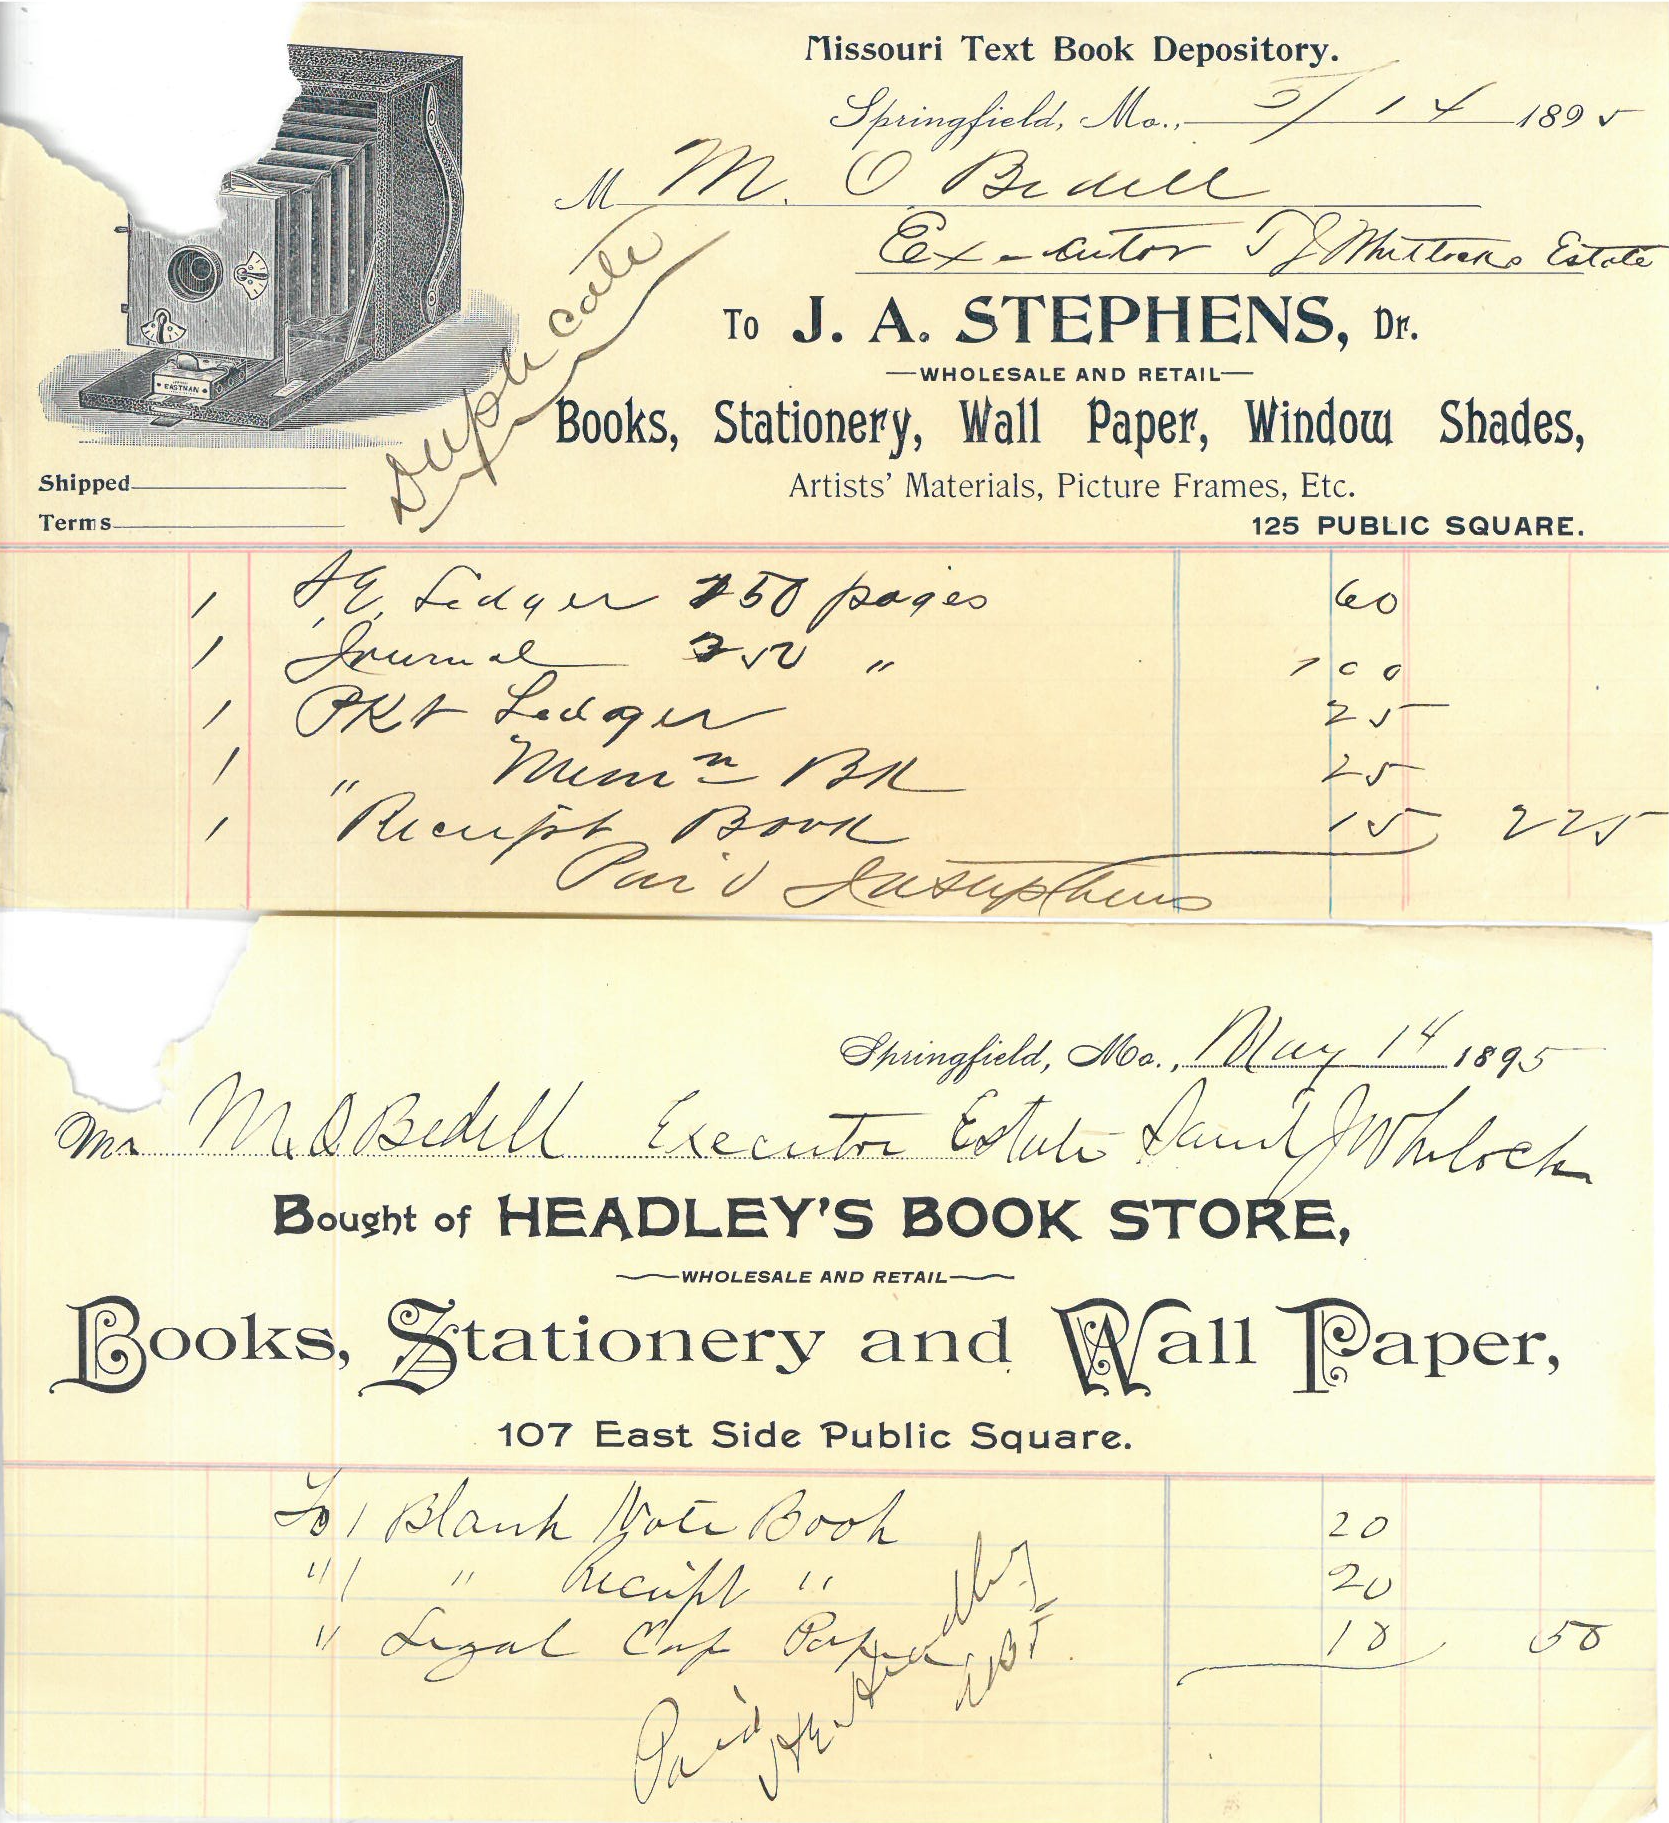 Missouri Text Book Depository.
Springfield, Mo., 5/14 1895
M M. O Bedell
Executor T J Whitlocks Estate
Duplicate
EASTMAN
To J. A. STEPHENS, Dr.
WHOLESALE AND RETAIL
Books, Stationery, Wall Paper, Window Shades,
Artists' Materials, Picture Frames, Etc.
Shipped
Terms
125 PUBLIC SQUARE.
1 Ledger 150 pages 60
1 Journal " 100
1 PKt Ledger 25
1 " Memn BK 25
1 Receipt Book 15 225
Paid J A Stephens
Springfield, Mo., May 14 1895
Mr M. O Bedell Executor Estate J Whitlock
Bought of HEADLEY'S BOOK STORE,
WHOLESALE AND RETAIL
Books, Stationery and Wall Paper,
107 East Side Public Square.
To 1 Blank Note Book 20
" 1 " Receipt " 20
" Legal Cap Paper 10 50
Paid
Headley